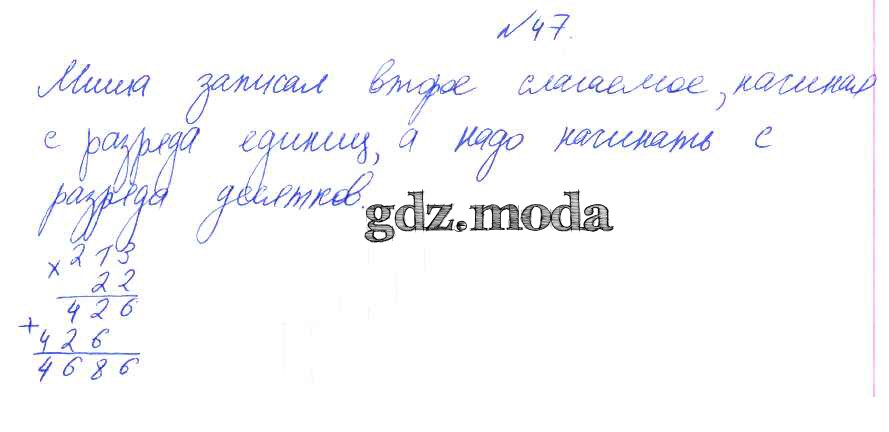 №47.
Миша записал второе слагаемое, начиная
с разряда единиц, а надо начинать с
разряда десятков.
gdz.moda
× 213
22
426
+
426
4686